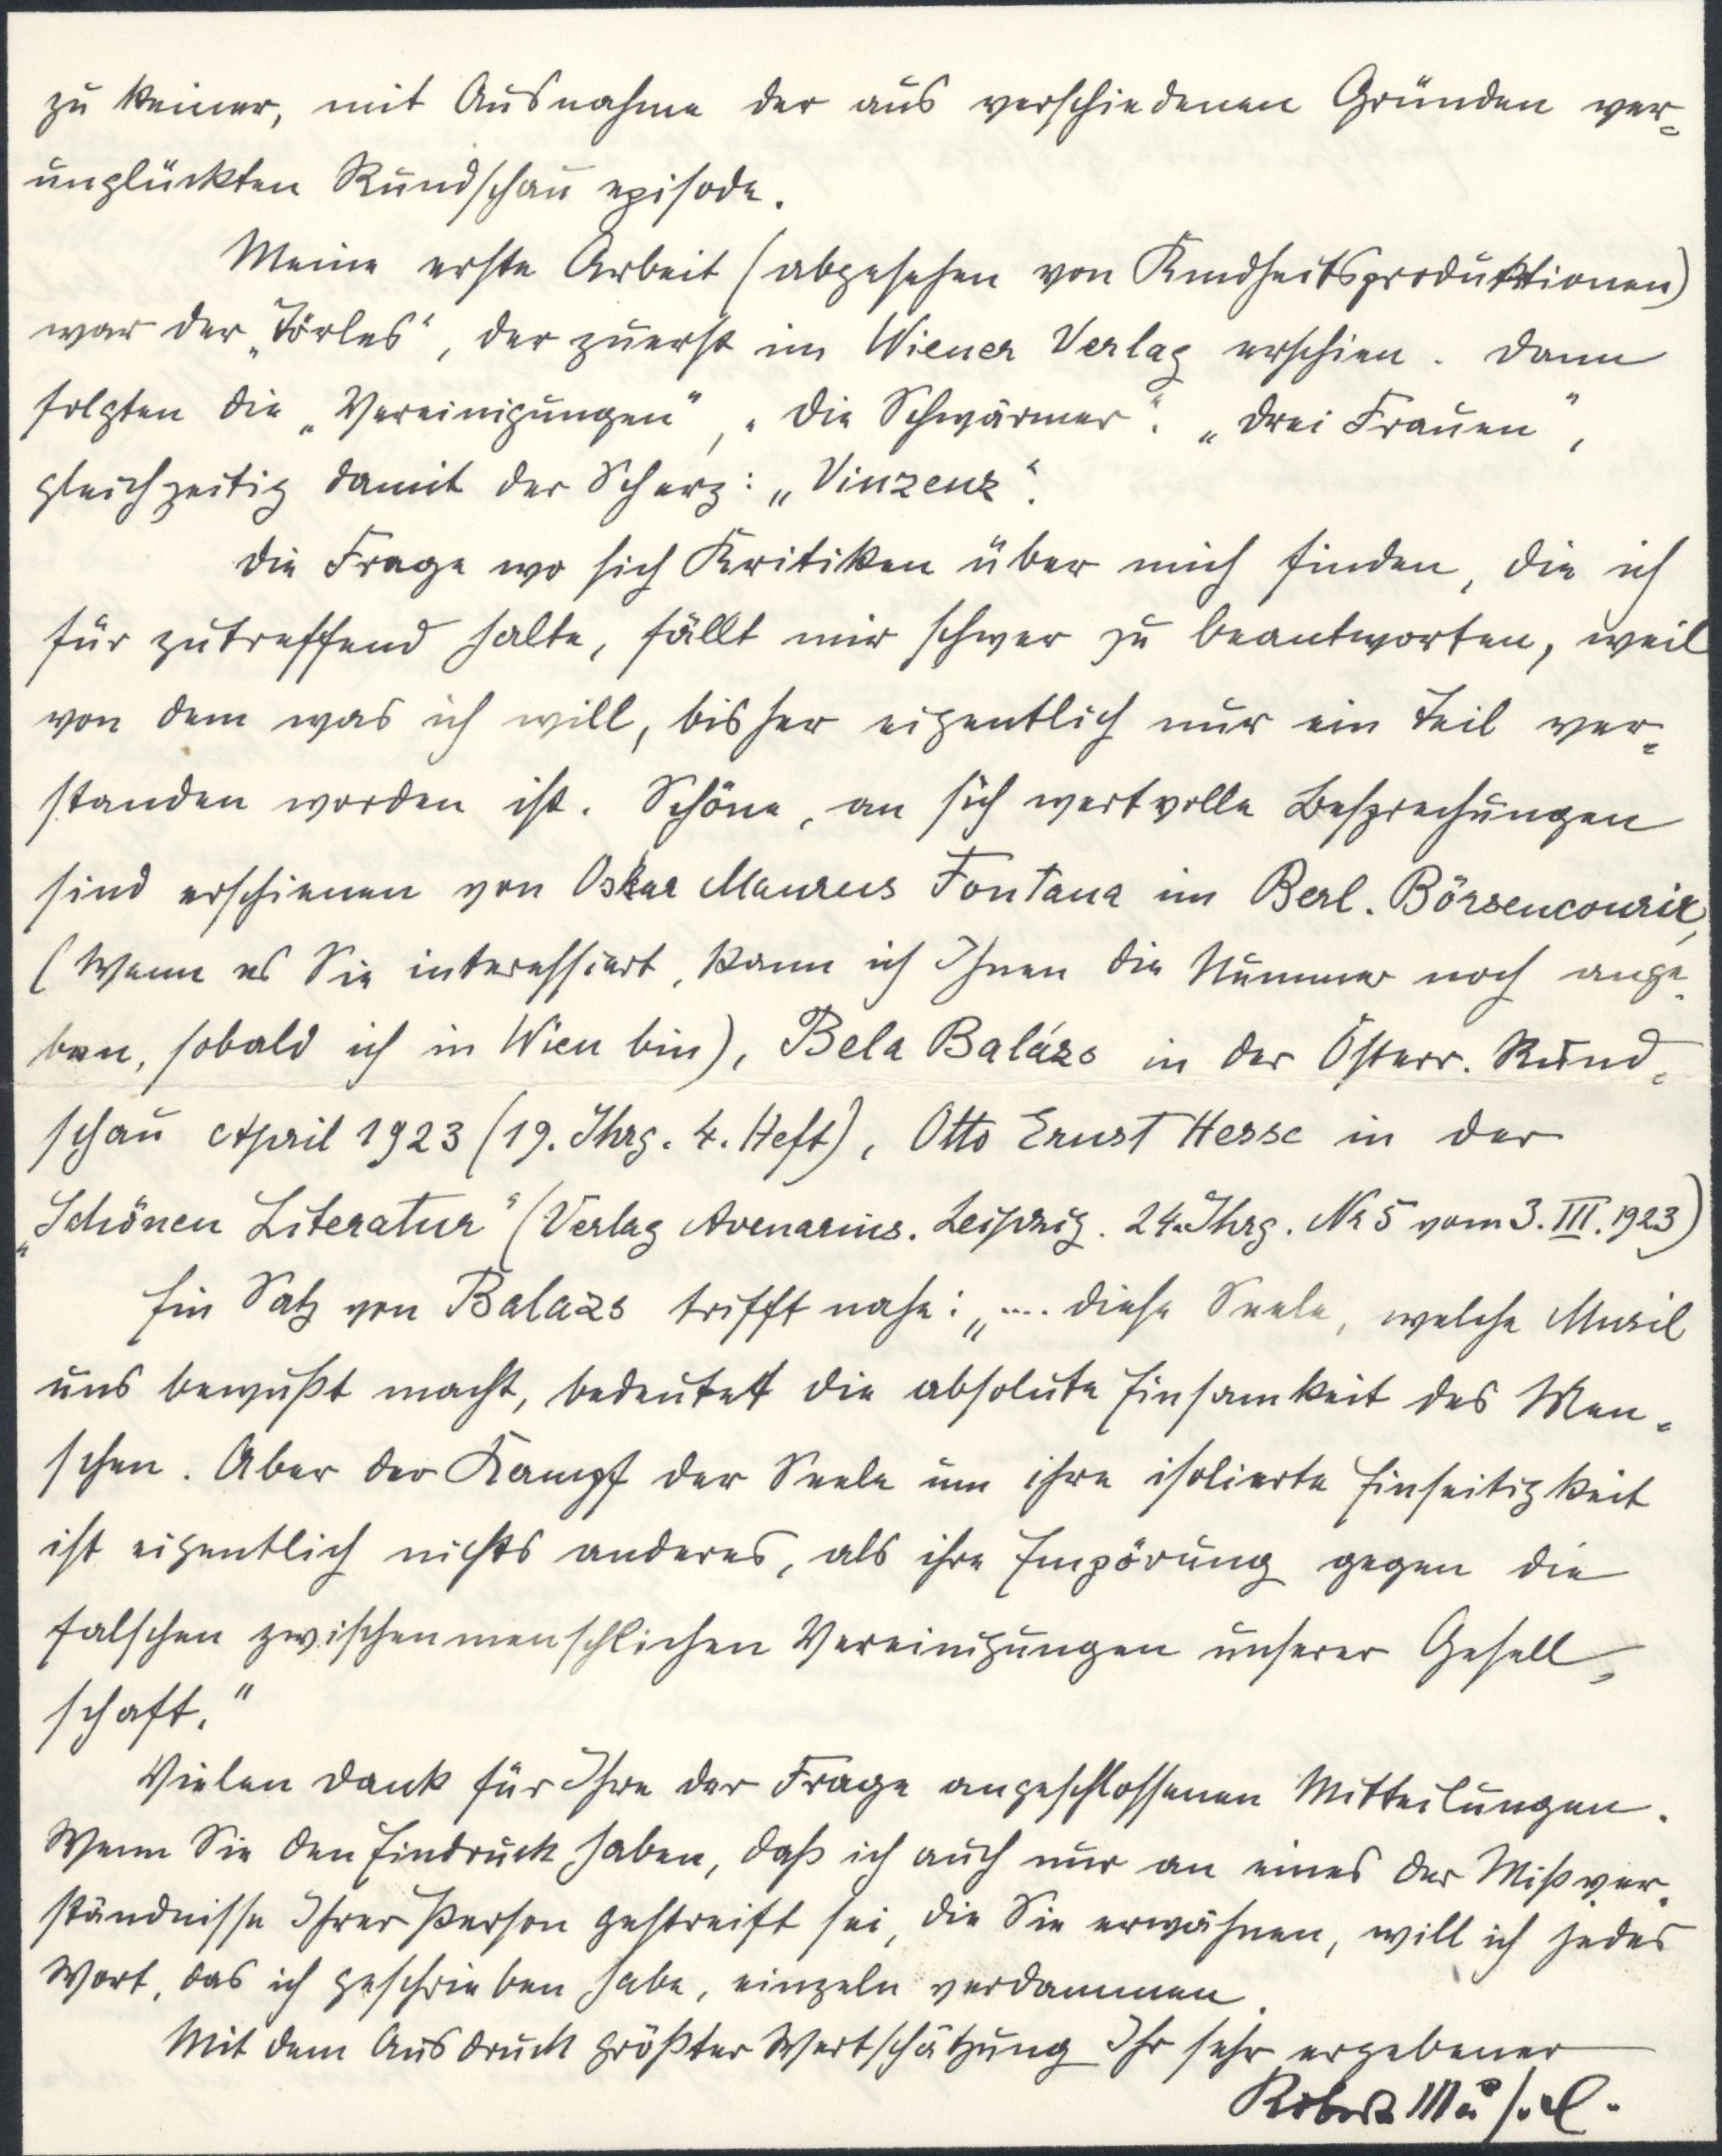 zu keiner, mit Ausnahme der aus verschiedenen Gründen ver=
unglückten Rundschau episode.
Meine erste Arbeit (abgesehen von Kindheitsproduktionen)
war der „Törles“, der zuerst im Wiener Verlag erschien. Dann
folgten die „Vereinigungen“, „die Schwärmer“. „Drei Frauen“,
gleichzeitig damit der Scherz: „Vinzenz“.
Die Frage wo sich Kritiken über mich finden, die ich
für zutreffend halte, fällt mir schwer zu beantworten, weil
von dem was ich will, bisher eigentlich nur ein Teil ver=
standen worden ist. Schöne, an sich wertvolle Besprechungen
sind erschienen von Oskar Maurus Fontana im Berl. Börsencourir,
(Wenn es Sie interessiert, kann ich Ihnen die Nummer noch ange=
ben, sobald ich in Wien bin), Bela Balázs in der Österr. Rund=
schau April 1923 (19. Jhrg. 4. Heft), Otto Ernst Hesse in der
„Schönen Literatur“ (Verlag Avenarius. Leipzig. 24. Jhrg. Nr 5 vom 3. III. 1923)
Ein Satz von Balazs trifft nahe: „.... diese Seele, welche Musil
uns bewußt macht, bedeutet die absolute Einsamkeit des Men=
schen. Aber der Kampf der Seele um ihre isolierte Einseitigkeit
ist eigentlich nichts anderes, als ihre Empörung gegen die
falschen zwischenmenschlichen Vereinigungen unserer Gesell=
schaft.“
Vielen Dank für Ihre der Frage angeschlossenen Mitteilungen.
Wenn Sie den Eindruck haben, daß ich auch nur an eines der Mißver=
ständnisse Ihrer Person gestreift sei, die Sie erwähnen, will ich jedes
Wort, das ich geschrieben habe, einzeln verdammen.
Mit dem Ausdruck größter Wertschätzung Ihr sehr ergebener
Robert Musil.